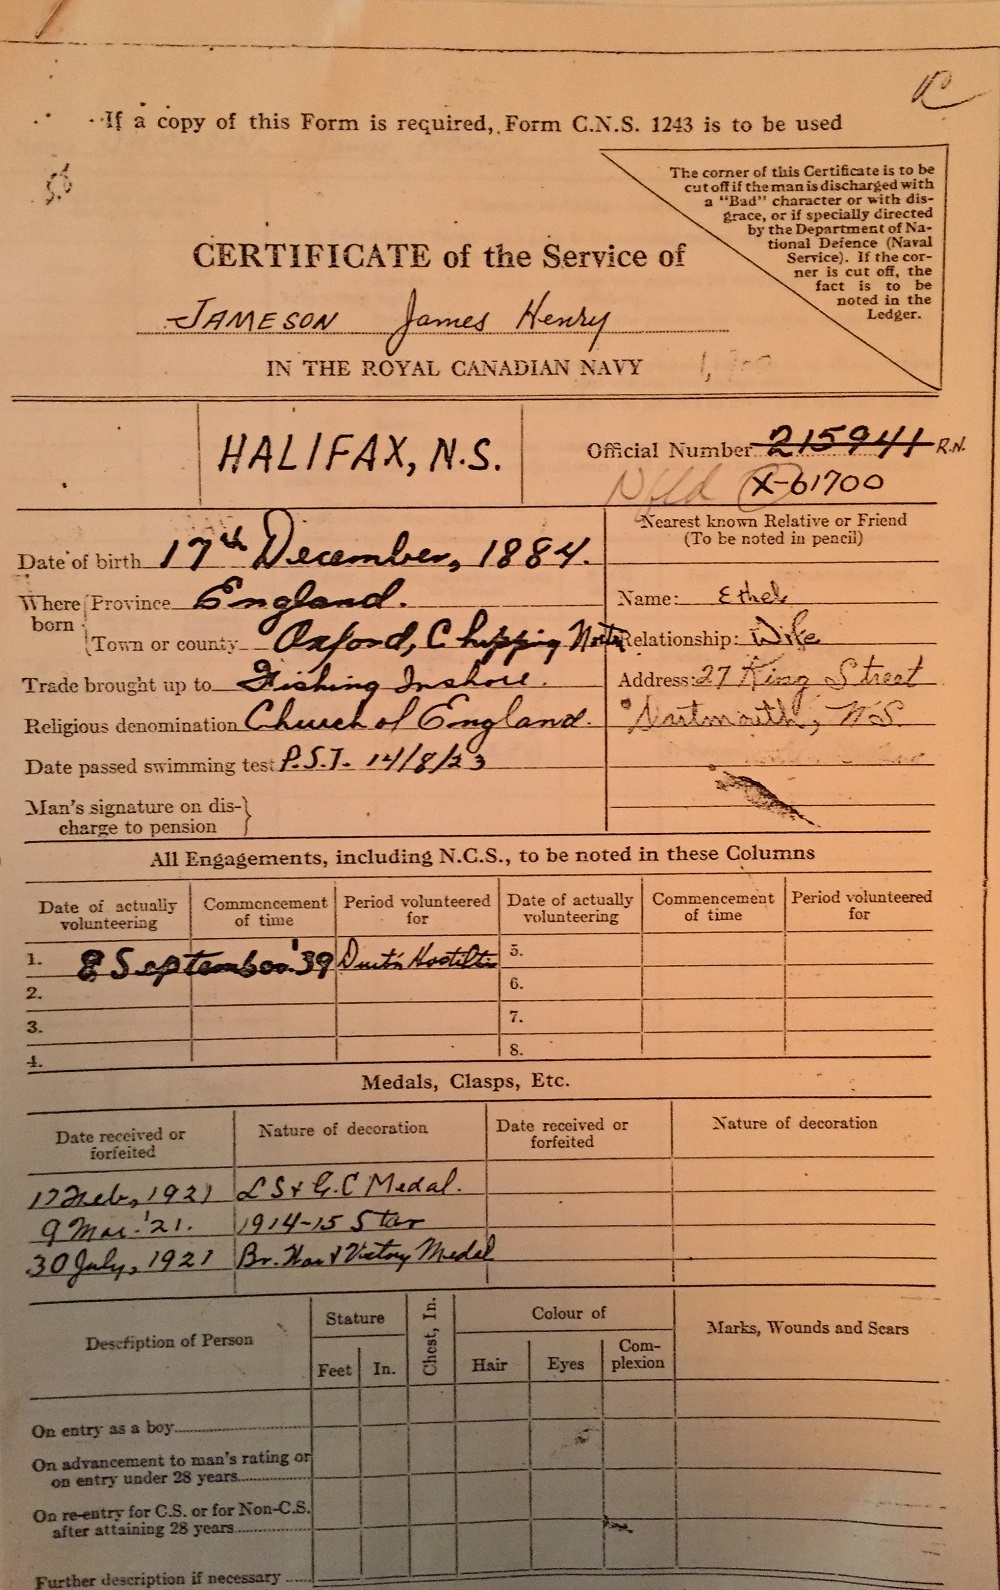 If a copy of this Form is required, Form C.N.S. 1243 is to be used
The corner of this Certificate is to be
cut off if the man is discharged with
a "Bad" character or with dis-
grace, or if specially directed
by the Department of Na-
tional Defence (Naval
Service). If the cor-
ner is cut off, the
fact is to be
noted in the
Ledger.
CERTIFICATE of the Service of
JAMESON James Henry
IN THE ROYAL CANADIAN NAVY
HALIFAX, N.S.
Official Number 215941 R.N.
Nfld X-61700
Nearest known Relative or Friend
(To be noted in pencil)
Date of birth 17th December, 1884.
Where born Province England.
Town or county Oxford, Chipping Norton
Trade brought up to Fishing Inshore.
Religious denomination Church of England.
Date passed swimming test P.S.T. 14/8/23
Man's signature on dis-
charge to pension
Name: Ethel
Relationship: Wife
Address: 27 King Street
Dartmouth, N.S.
All Engagements, including N.C.S., to be noted in these Columns
Date of actually volunteering Commencement of time Period volunteered for Date of actually volunteering Commencement of time Period volunteered for
1. 8 September '39 Durt'n Hostilts 5.
2. 6.
3. 7.
4. 8.
Medals, Clasps, Etc.
Date received or forfeited Nature of decoration Date received or forfeited Nature of decoration
17 Feb, 1921 LS & G.C Medal.
9 Mar. '21. 1914-15 Star
30 July, 1921 Br. War & Victory Medal
Description of Person Stature Chest, In. Colour of Marks, Wounds and Scars
Feet In. Hair Eyes Com-
plexion
On entry as a boy
On advancement to man's rating or
on entry under 28 years
On re-entry for C.S. or for Non-C.S.
after attaining 28 years
Further description if necessary